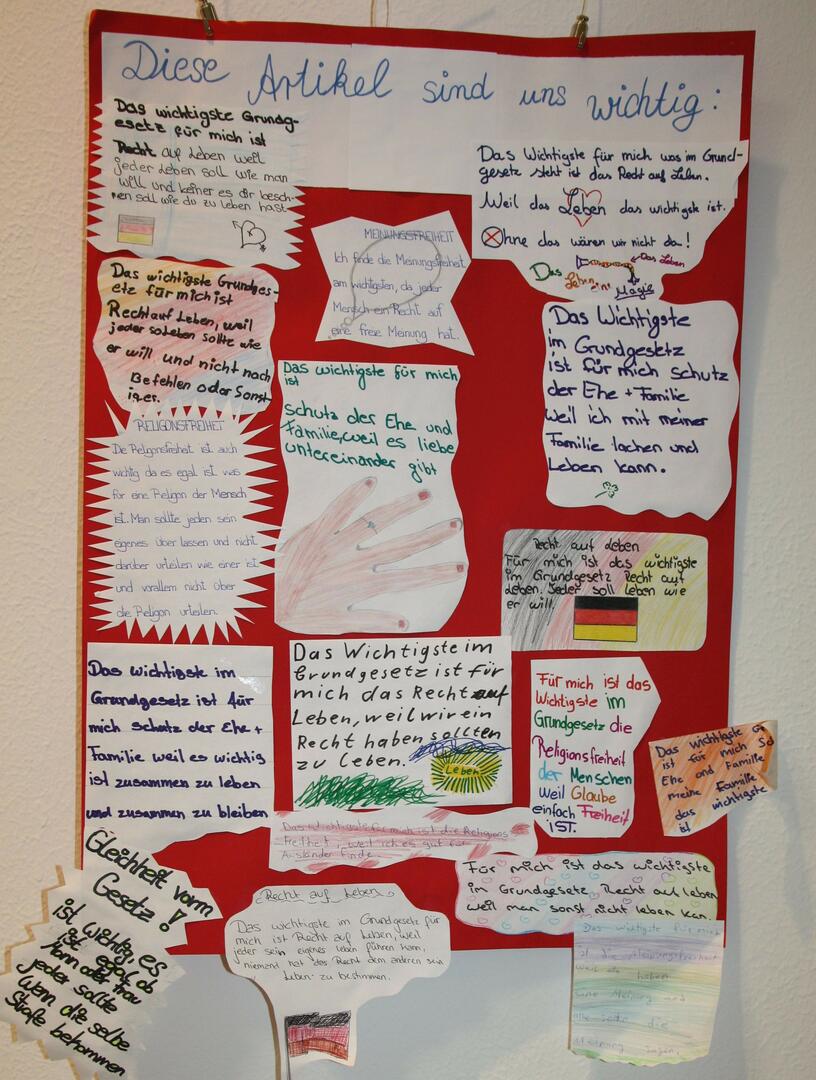 Diese Artikel sind uns wichtig:
Das wichtigste Grundg-
esetz für mich ist
Recht auf Leben weil
jeder Leben soll wie man
will und keiner es dir besch-
en soll wie du zu leben hast
Das Wichtigste für mich was im Grund-
gesetze steht ist das Recht auf Leben.
Weil das Leben das wichtigste ist.
Ohne das wären wir nicht da!
Das Leben
Das Leben ist Magie
MEINUNGSFREIHEIT
Ich finde die Meinungsfreiheit
am wichtigsten, da jeder
Mensch ein Recht auf
eine freie Meinung hat.
Das wichtigste Grundges-
etz für mich ist
Recht auf Leben, weil
jeder so leben sollte wie
er will und nicht nach
Befehlen oder Sonst
Das Wichtigste
im Grundgesetz
ist für mich schutz
der Ehe + Familie
weil ich mit meiner
Familie lachen und
Leben kann.
Das wichtigste für mich
ist
schutz der Ehe und
Familie, weil es liebe
untereinander gibt
RELIGONSFREIHEIT
Die Religonsfreiheit ist auch
wichtig da es egal ist was
für eine Religon der Mensch
ist. Man sollte jeden sein
eigenes über lassen und nicht
darüber urteilen wie einer ist
und vorallem nicht über
die Religon urteilen.
Recht auf Leben
Für mich ist das wichtigste
im Grundgesetz Recht auf
Leben. Jeder soll leben wie
er will.
Das wichtigste im
Grundgesetz ist für
mich schutz der Ehe +
Familie weil es wichtig
ist zusammen zu leben
und zusammen zu bleiben
Das Wichtigste im
Grundgesetz ist für
mich das Recht auf
Leben, weil wir ein
Recht haben sollten
zu Leben.
Leben
Für mich ist das
Wichtigste im
Grundgesetz die
Religionsfreiheit
der Menschen
weil Glaube
einfach Freiheit
IST.
Das wichtigste
ist für mich
Ehe und Familie
meine Familie
das wichtigste
ist
Das wichtigste für mich ist die Religions
freiheit, weil ich es gut für
Ausländer finde.
Gleichheit vorm
Gesetz!
ist wichtig, es
ist egal ob
Mann oder frau
jeder sollte
Wenn die selbe
Strafe bekommen
Recht auf Leben
Das wichtigste im Grundgesetz für
mich ist Recht auf Leben, weil
jeder sein eigenes Leben führen kann,
niemand hat das Recht dem anderen sein
Leben zu bestimmen.
Für mich ist das wichtigste
im Grundgesetz Recht auf leben
weil man sonst nicht leben kan.
Das wichtigste für mich
ist die Meinungsfreiheit
weil alle haben
eine Meinung und
alle die
Meinung sagen.